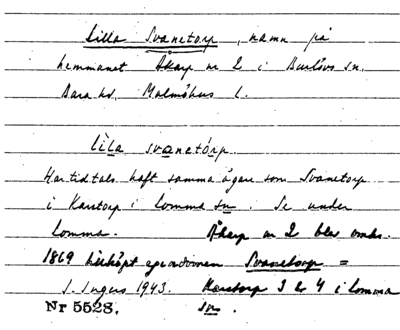 Lilla Svanetorp, namn på
hemmanet Åkarp nr 2 i Burlövs sn.
Bara hd. Malmöhus l.
lìla svanetórp
Har tidtals haft samma ägare som Svanetorp
i Karstorp i Lomma sn. Se under
Lomma. Åkarp nr 2 blev omkr.
1869 köpt egendomen Svanetorp =
J. Ingers 1943. Karstorp 3 & 4 i Lomma
Nr 5528. sn.